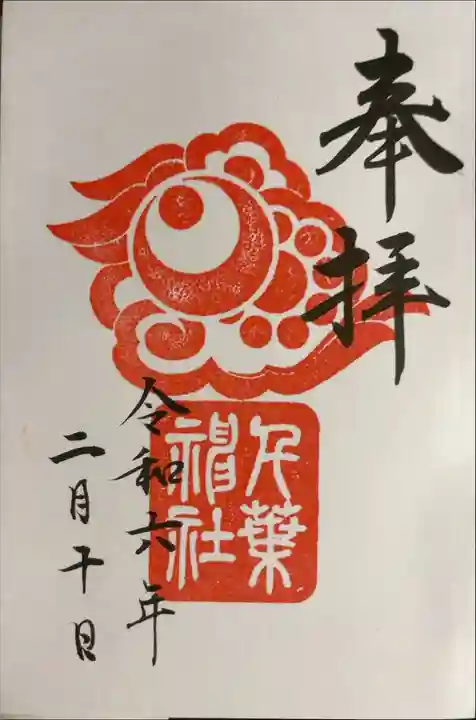 奉拝
千葉
神社
令和六年
二月十日